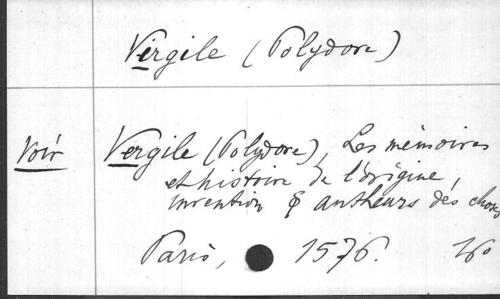 Vergile (Polydore)
Voir Vergile (Polydore), Les mémoires
et histoire de l'origine,
invention & autheurs des choses
Paris, 1576. 16º